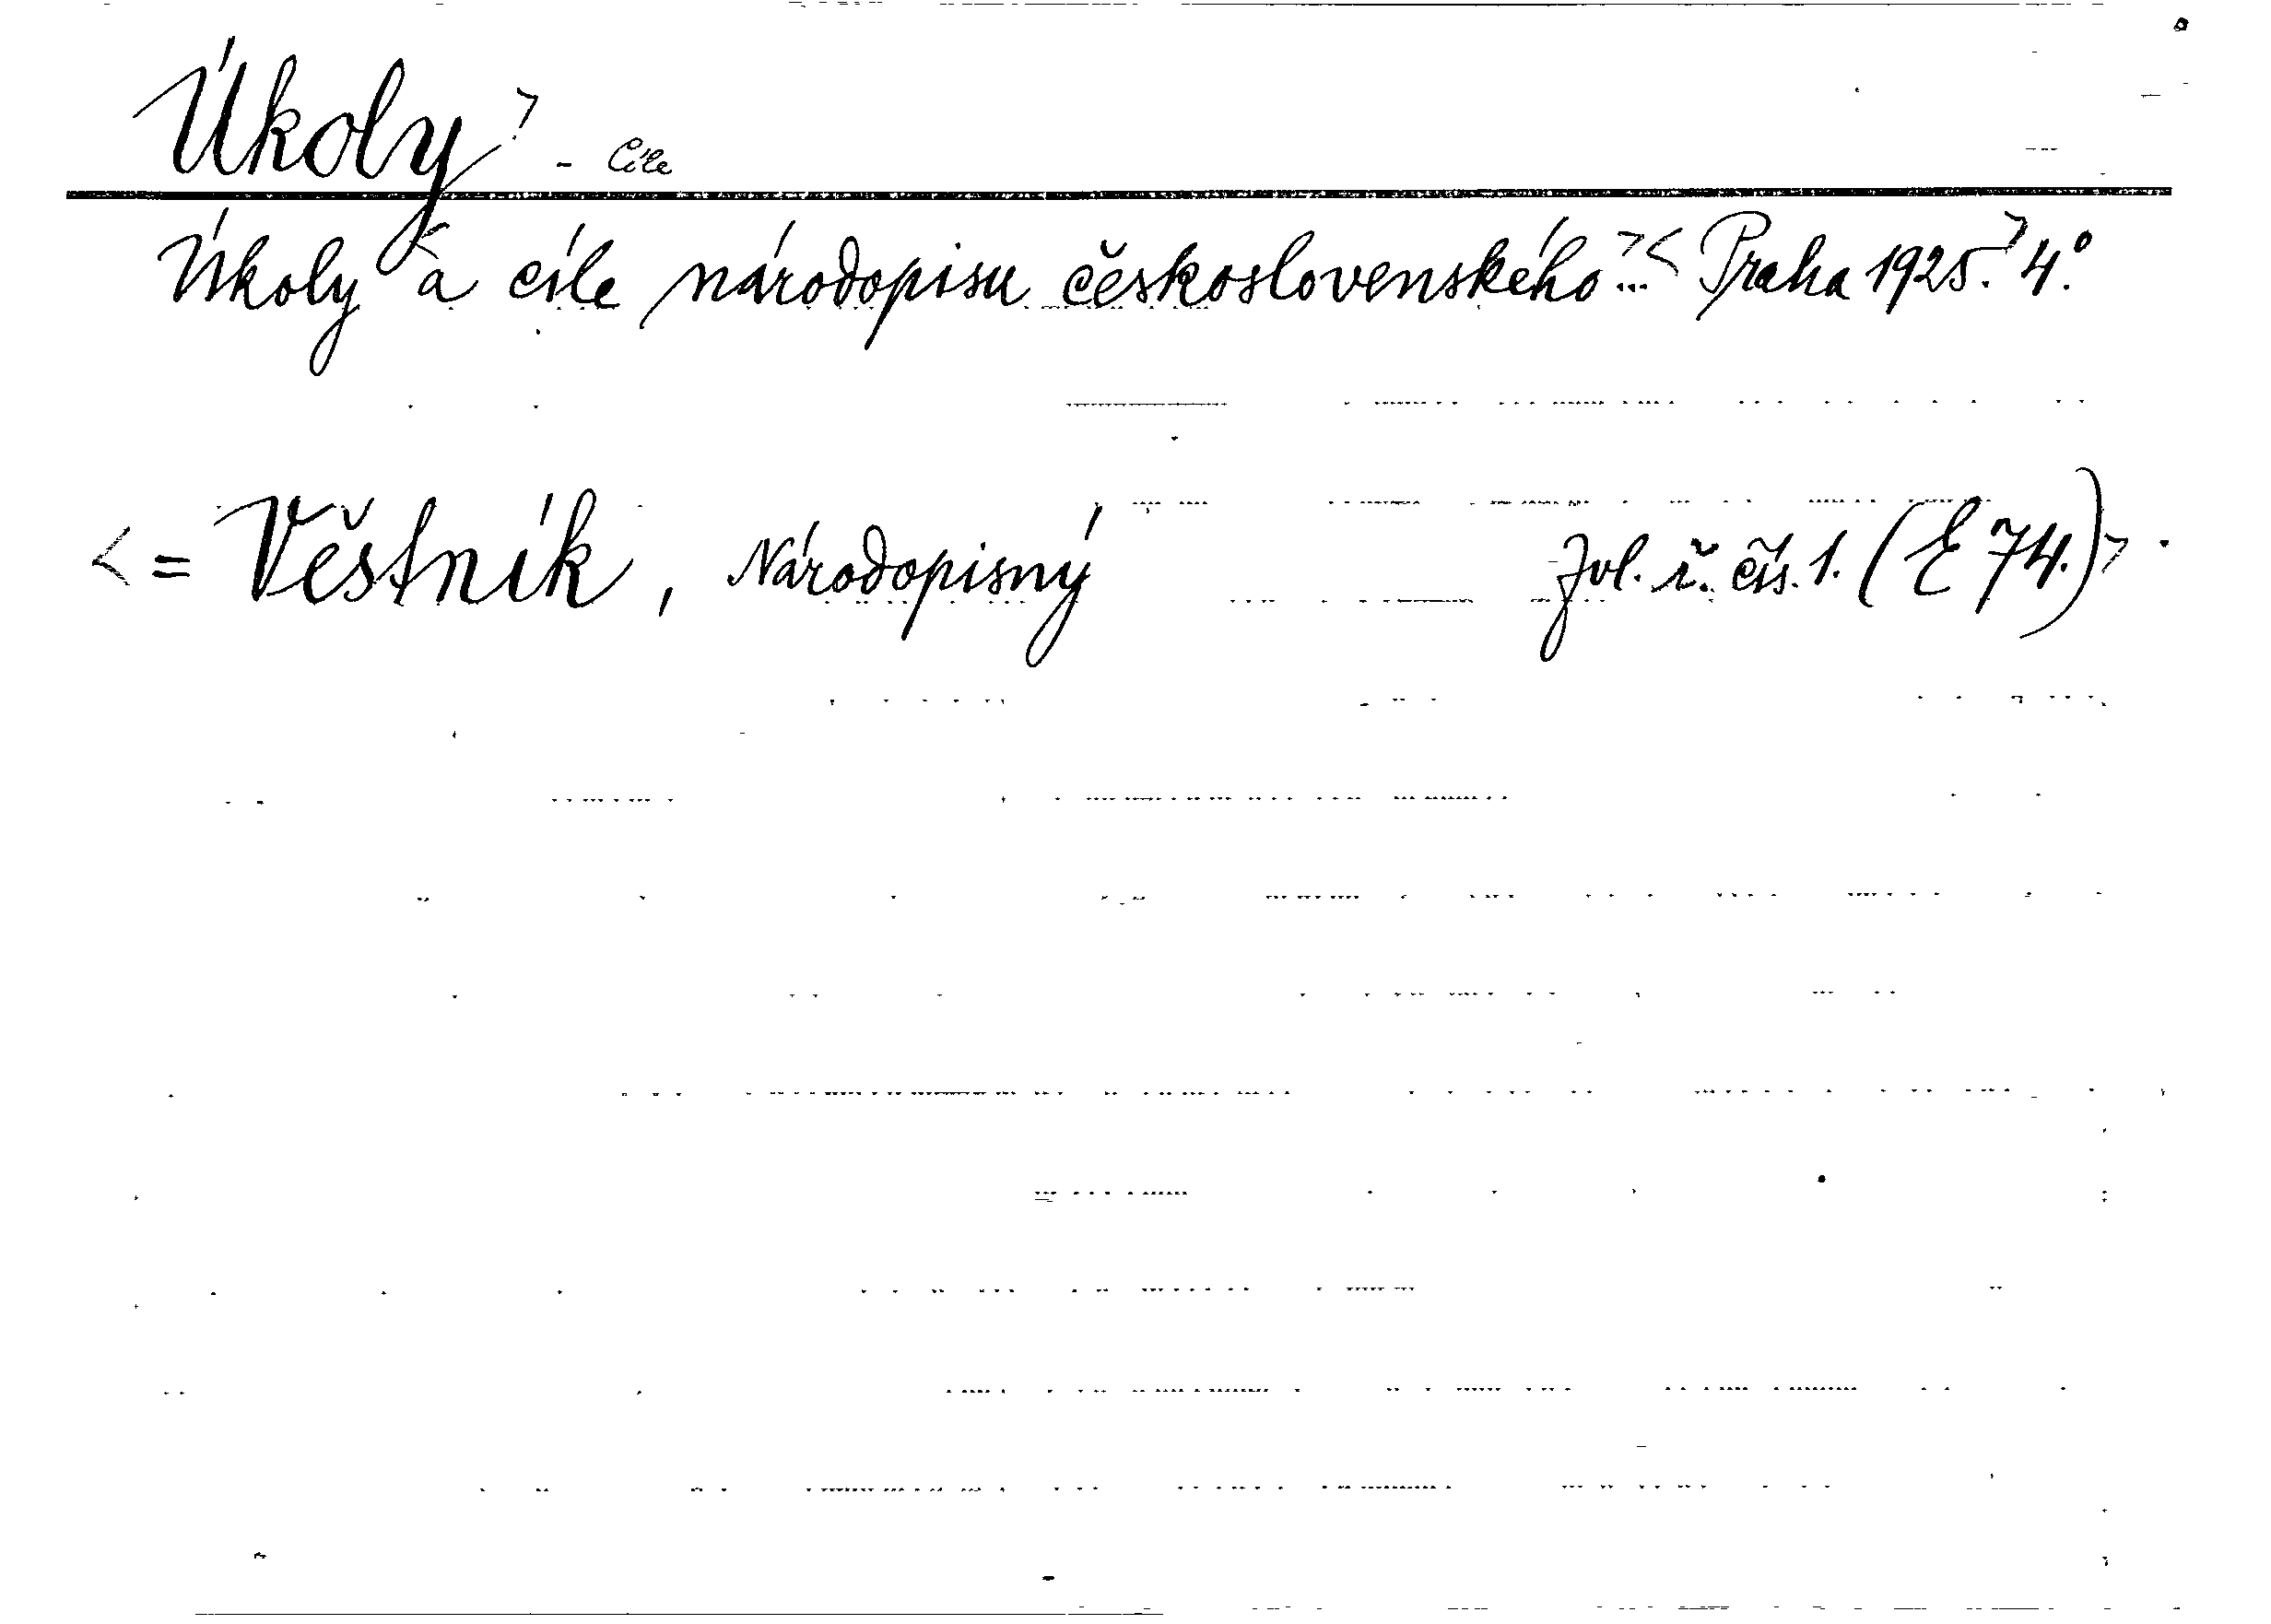 Úkoly > - Cíle
Úkoly < a cíle národopisu československého...>< Praha 1925.> 4.°
< = Věstník, Národopisný Zvl. ř. čís. 1. (E 74.)> .